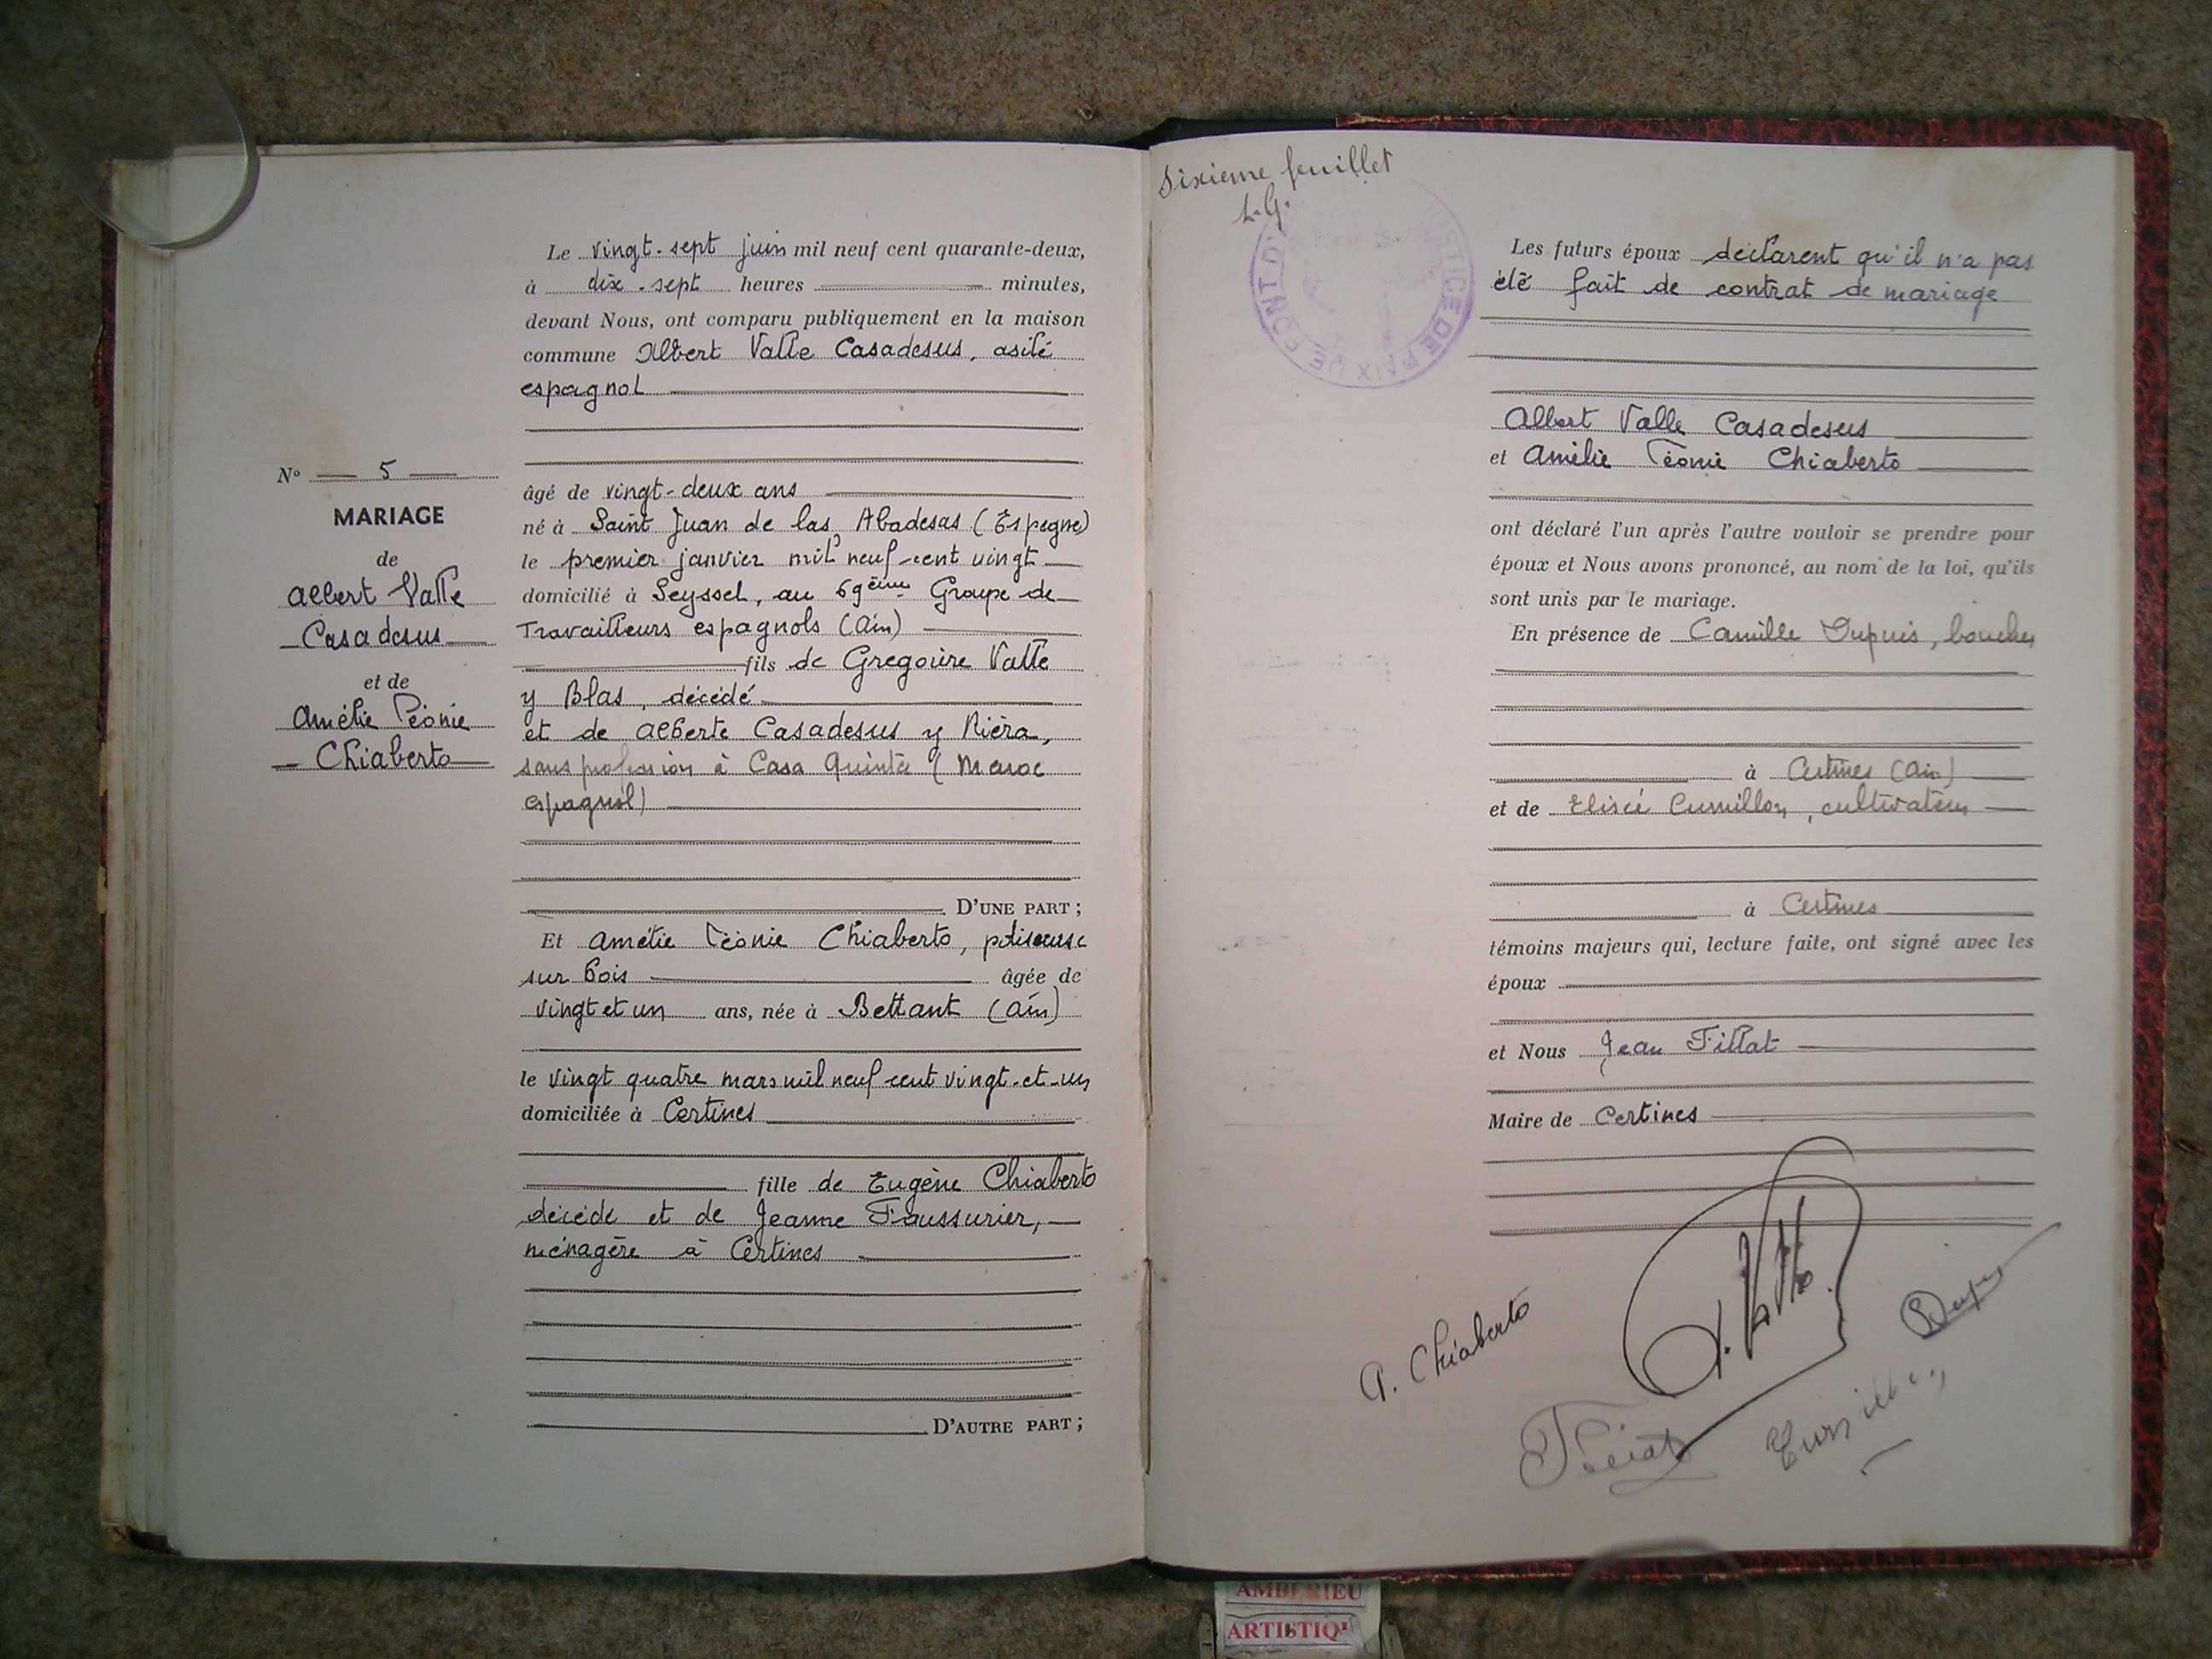 Le vingt-sept juin mil neuf cent quarante-deux,
à dix-sept heures minutes,
devant Nous, ont comparu publiquement en la maison
commune Albert Valle Casadesus, asilé
espagnol
N° 5
MARIAGE
de
Albert Valle
Casadesus
et de
Amélie Léonie
Chiaberto
âgé de vingt-deux ans
né à Saint Juan de las Abadesas (Espagne)
le premier janvier mil neuf cent vingt
domicilié à Seyssel, au 69ème Groupe de
Travailleurs espagnols (Ain)
fils de Gregoire Valle
y Blas, décédé
et de Alberte Casadesus y Riéra,
sans profession à Casa Quinta (Maroc
espagnol)
D'UNE PART ;
Et Amélie Léonie Chiaberto, polisseuse
sur bois âgée de
vingt et un ans, née à Bettant (Ain)
le vingt quatre mars mil neuf cent vingt-et-un
domiciliée à Certines
fille de Eugène Chiaberto
décédé et de Jeanne Faussurier,
ménagère à Certines
D'AUTRE PART ;
Sixième feuillet
L.G.
JUSTICE DE PAIX DE PONT D'
Les futurs époux déclarent qu'il n'a pas
été fait de contrat de mariage
Albert Valle Casadesus
et Amélie Léonie Chiaberto
ont déclaré l'un après l'autre vouloir se prendre pour
époux et Nous avons prononcé, au nom de la loi, qu'ils
sont unis par le mariage.
En présence de Camille Dupuis, boucher
à Certines (Ain)
et de Elisée Curnillon, cultivateur
à Certines
témoins majeurs qui, lecture faite, ont signé avec les
époux
et Nous Jean Fillat
Maire de Certines
A. Chiaberto
AMBERIEU
ARTISTIQ